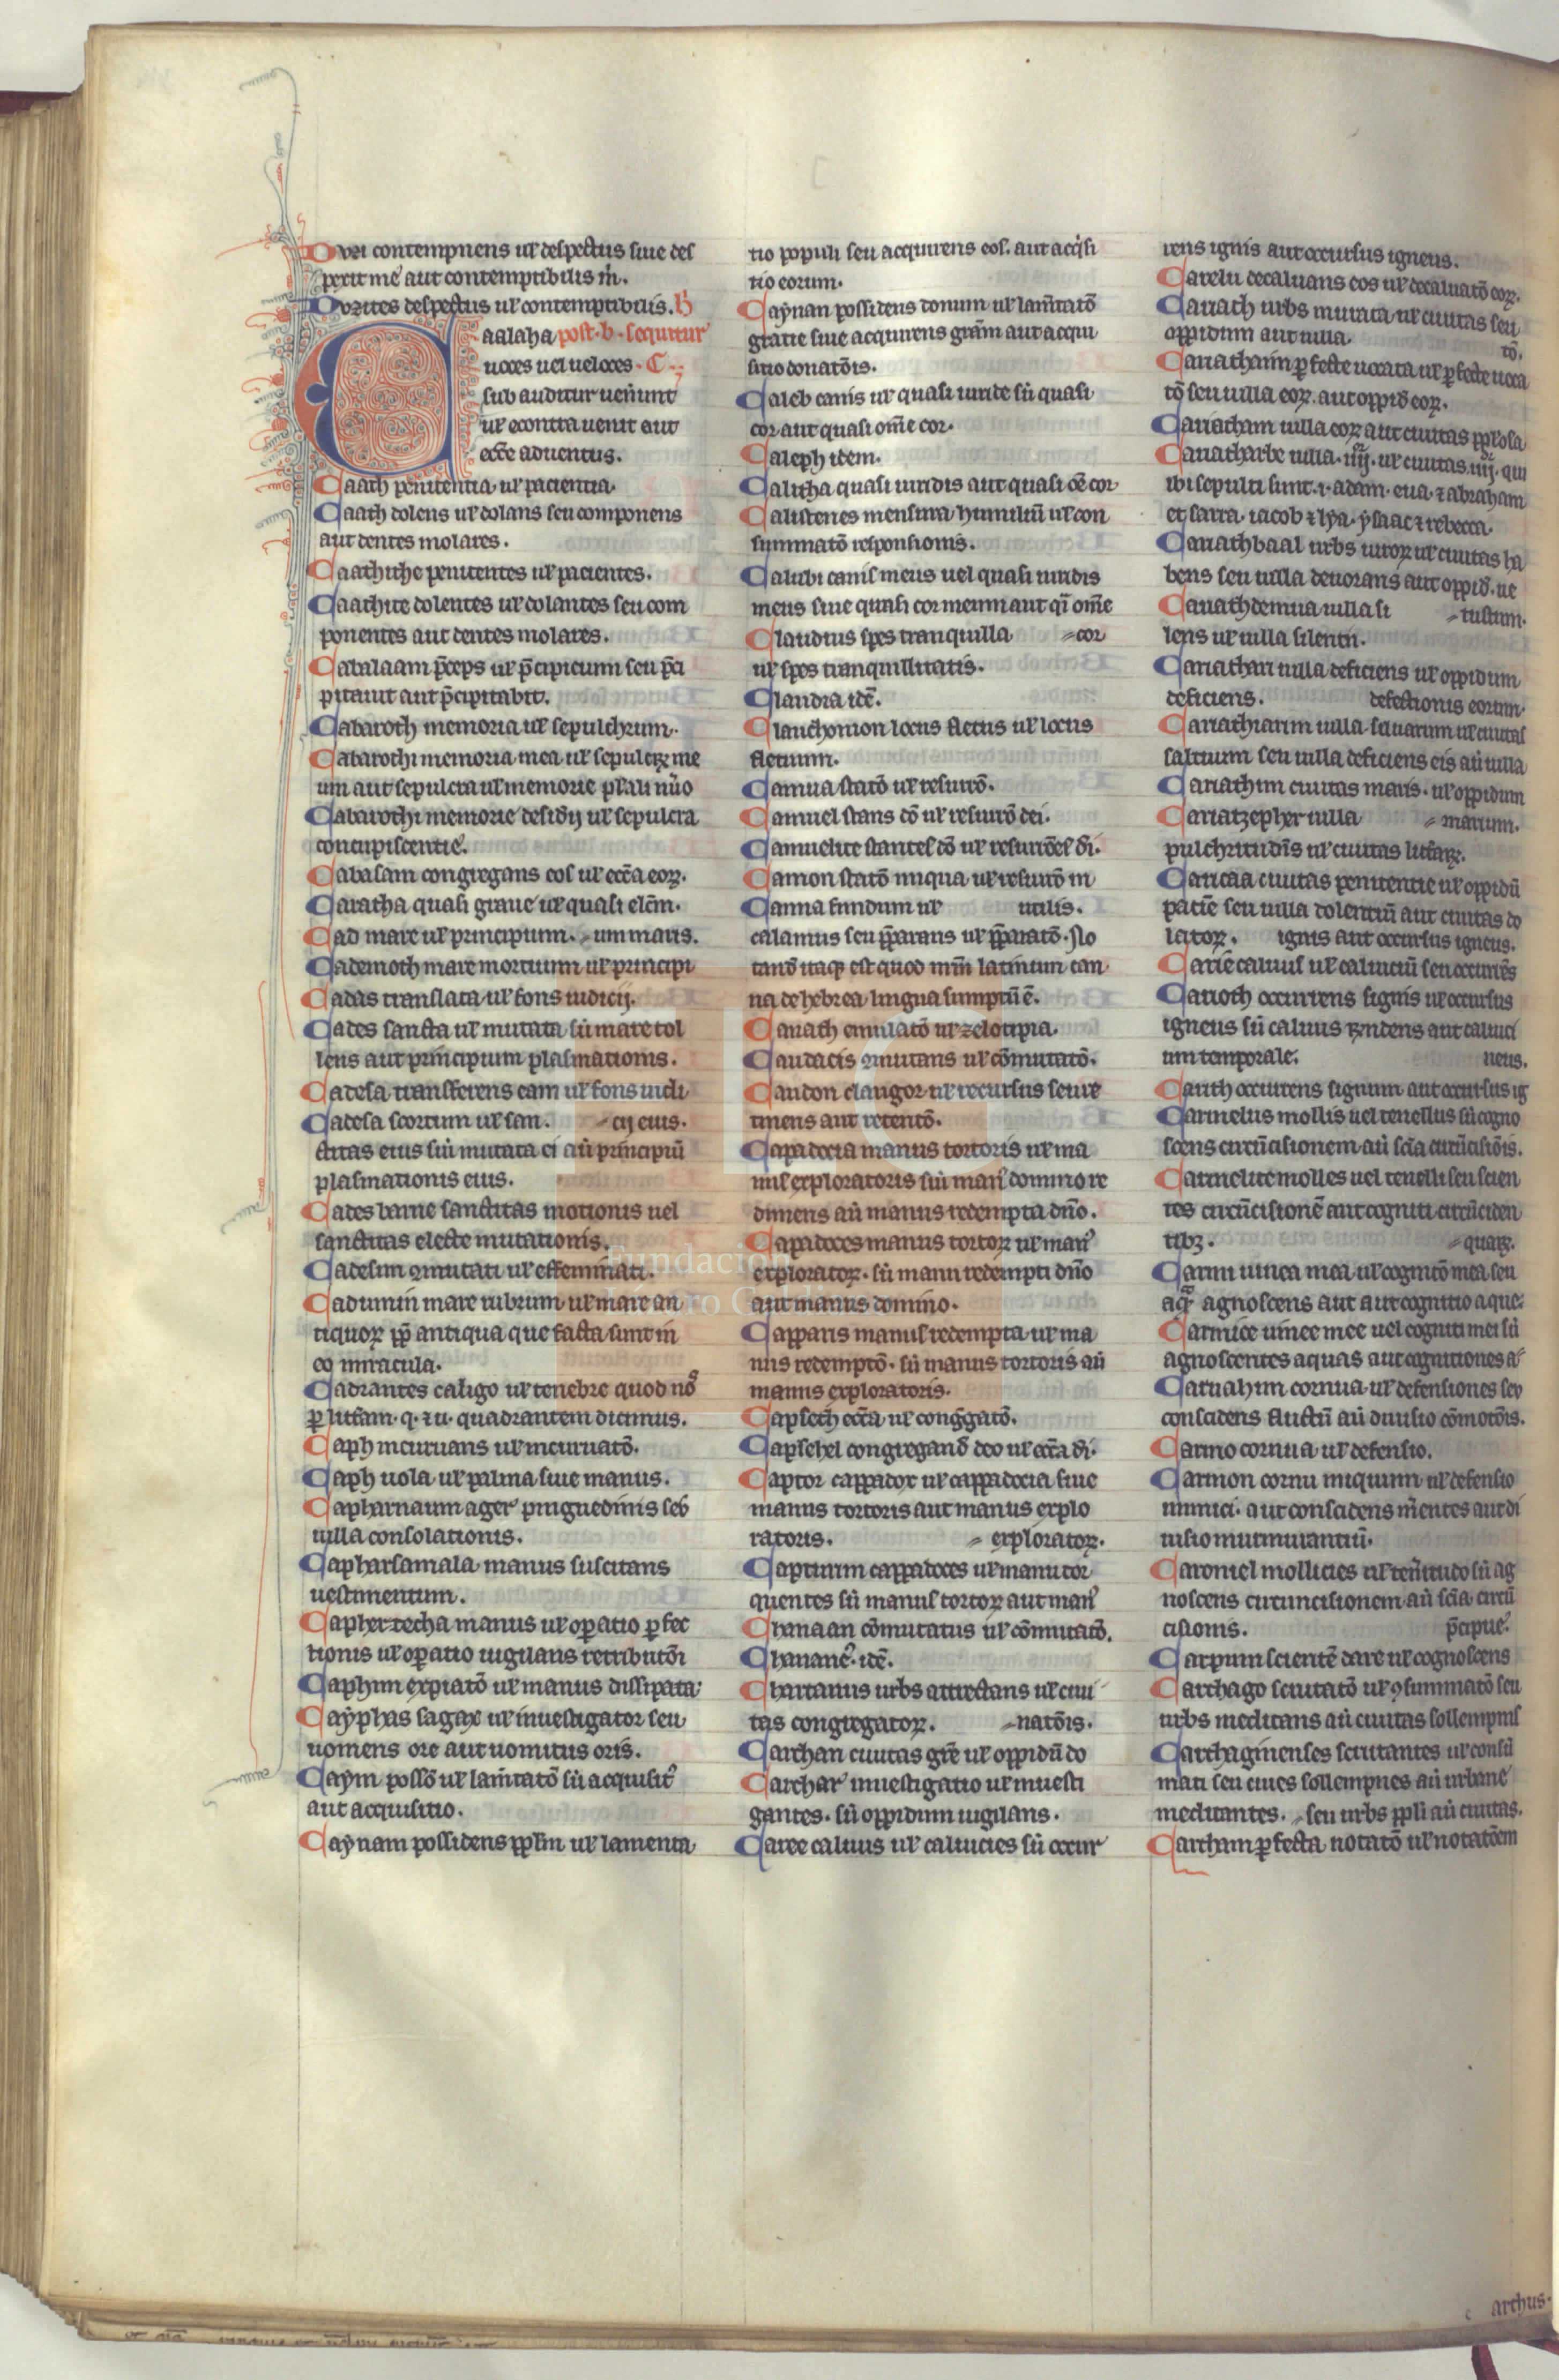 Buzi contempnens uel despectus siue des
pexit me aut contemptibilis m̄.
Buzites despectus uel contemptibilis. b
Caalaha post .b. sequitur
uoces uel ueloces. C
sub auditur uenerunt
uel econtra uenit aut
ecce aduentus.
Caath penitentia uel paciencia.
Caath dolens uel dolans seu componens
aut dentes molares.
Caathithe penitentes uel pacientes.
Caathite dolentes uel dolantes seu com
ponentes aut dentes molares.
Cabalaam p̄ceps uel p̄cipicium seu p̄ci
pitauit aut p̄cipitabit.
Cabaroth memoria uel sepulchrum.
Cabarothi memoria mea uel sepulcrꝝ me
um aut sepulcra uel memorie
Cabarothi memorie desidij uel sepulcra
concupiscentie.
Cabasam congregans eos uel eccā eoꝝ.
Caratha quasi graue uel quasi elēm.
Cad mare uel principium. um maris.
Cademoth mare mortuum uel principi
Cadas translata uel fons iudicij.
Cades sancta uel mutata siū mare tol
lens aut principium plasmationis.
Cadesa transferens eam uel fons iudi
Cadesa scortum uel san. cij eius.
ctitas eius siū mutata ei aū principiū
plasmationis eius.
Cades barne sanctitas motionis uel
sanctitas electe mutationis.
Cadesim mutati uel effeminati.
Cadumin mare rubrum uel mare an
tiquoꝝ pp̄ antiqua que facta sunt in
eo miracula.
Cadrantes caligo uel tenebre quod nos
per litt̄am .q. ⁊ u. quadrantem dicimus.
Caph incuruans uel incuruatō.
Caph uola uel palma siue manus.
Capharnaum ager pinguedinis seu
uilla consolationis.
Capharsamala manus suscitans
uestimentum.
Capher techa manus uel opatio pfec
tionis uel opatio uigilans retributōi
Caphim expiatō uel manus dissipata
Cayphas sagax uel inuestigator seu
uomens ore aut uomitus oris.
Caym possō uel lam̄tatō siū acquisit
aut acquisitio.
Caynam possidens ppl̄m uel lamenta
tio populi seu acquirens eos. aut acqisi
tio eorum.
Caynan possidens donum uel lam̄tatō
gratie siue acquirens grām aut acqui
sitio donatōis.
Caleb canis uel quasi uiride siū quasi
cor aut quasi om̄e cor.
Caleph idem.
Calitha quasi uiridis aut quasi oē cor
Calistenes mensura humiliū uel con
summatō responsionis.
Calubi canis meus uel quasi uiridis
meus siue quasi cor meum aut qi om̄e
Claudius spes tranquilla cor
uel spes tranquillitatis.
Claudia idē.
Clauthomon locus fletus uel locus
fletium.
Camua statō uel resurrō.
Camuel stans dō uel resurrō dei.
Camuelite stantes dō uel resurrōēs di.
Camon statō iniqua uel resurrō in
Canna fundum uel utilis.
calamus seu pp̄arans uel pp̄aratō. No
tand̄ itaqꝫ est quod nom̄ latinum can
na de hebrea lingua sumptū ē.
Canath emulatō uel zelotipia.
Caudacis mutans uel cōmutatō.
Caudon clangor uel recursus seu re
tinens aut retentō.
Capadocia manus tortoris uel ma
nus exploratoris siū man' domino re
dimens aū manus redempta dn̄o.
Capadoces manus tortoꝝ uel man'
exploratoꝝ. siū manu redempti dn̄o
aut manus domino.
Capparis manus redempta uel ma
nus redemptō. siū manus tortoris aū
manus exploratoris.
Capseth eccā uel cong̅gatō.
Capsehel congregand̄ deo uel eccā di.
Captor cappadox uel cappadocia siue
manus tortoris aut manus explo
ratoris. exploratoꝝ.
Capturim cappadoces uel manu tor
quentes siū manus tortoꝝ aut man'
Chanaan cōmutatus uel cōmutatō.
Chanane'. idē.
Chartanus urbs attrectans uel ciui
tas congregatoꝝ. natōis.
Carchan ciuitas gre uel oppidū do
Carchar inuestigatio uel inuesti
gantes. siū oppidum uigilans.
Caree caluus uel caluicies siū occur
rens ignis aut occursus igneus.
Carelu decaluans eos uel decaluatō eoꝝ.
Cariath urbs mutata uel ciuitas seu
oppidum aut uilla. tō.
Cariathaim pfecte uocata uel pfecte uoca
tō seu uilla eoꝝ. aut oppid̄ eoꝝ.
Cariatham uilla eoꝝ aut ciuitas pplosa
Cariatharbe uilla .iiij. uel ciuitas .iiij. qui
ibi sepulti sunt .i. adam. eua. ⁊ abraham
et sarra. iacob ⁊ lya. ysaac ⁊ rebecca.
Cariathbaal urbs uiroꝝ uel ciuitas ha
bens seu uilla deuorans aut oppid̄. ue
Cariathdemua uilla si tustum.
lens uel uilla silentii.
Cariathari uilla deficiens uel oppidum
deficiens. defectionis eorum.
Cariathiarim uilla siluarum uel ciuitas
saltuum seu uilla deficiens eis aū uilla
Cariathim ciuitas maris. uel oppidum
Cariatzepher uilla marium.
pulchritudīs uel ciuitas litt̄aꝝ.
Caricaa ciuitas penitentie uel oppidū
pacīe seu uilla dolentiū aut ciuitas do
latoꝝ. ignis aut occursus igneus.
Carie caluus uel caluiciū seu occurrēs
Carioth occurrens signis uel occursus
igneus siū caluus tendens aut caluici
um temporale. neus.
Carith occurrens signum aut occursus ig
Carmelus mollis uel tenellus siū cogno
scens circūcisionem aū scīa circūcisiōis.
Carmelite molles uel tenelli seu scien
tes circūcisionē aut cogniti circūciden
tibꝫ. quaꝝ.
Carmi uinea mea uel cognitō mea seu
aqꝫ agnoscens aut aut cognitio aque.
Carmice uinee mee uel cogniti mei siū
agnoscentes aquas aut cognitiones a
Carnahim cornua uel defensiones seu
conscidens fluctū aū diuisio cōmotōis.
Carmo cornua uel defensio.
Carmon cornu iniquum uel defensio
inimici. aut conscidens m̄entes aut di
uisio murmurantiū.
Caromel mollicies uel ten̄itudo siū ag
noscens circumcisionem aū scīa circū
cisionis. p̄cipue.
Carpum scientē dare uel cognoscens
Carthago scrutatō uel ꝯsummatō seu
urbs meditans aū ciuitas sollempnis
Carthaginenses scrutantes uel consū
mati seu ciues sollempnes aū urbane
meditantes. seu urbs ppli aū ciuitas.
Cartham pfecta notatō uel notatōem
arthus.
Fundación
Lázaro Galdiano